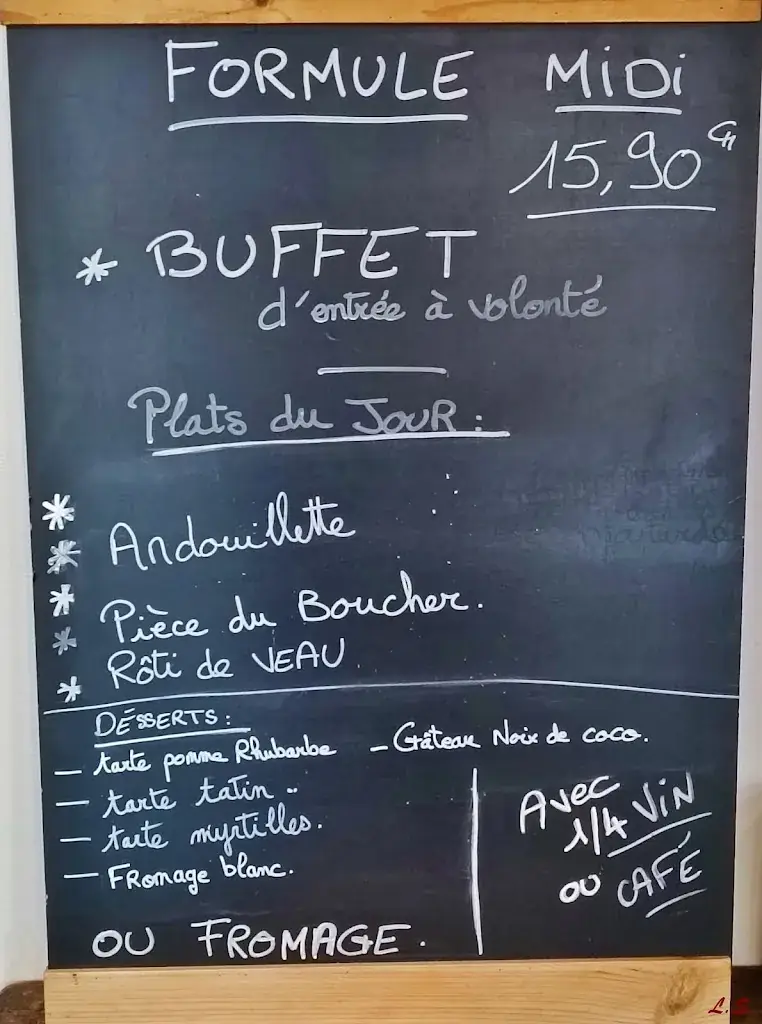 FORMULE MiDi
15,90 €
* BUFFET
d'entrée à volonté
Plats du JOUR :
* Andouillette
* Pièce du Boucher.
* Rôti de VEAU
DÉSSERTS :
— tarte pomme Rhubarbe
— tarte tatin ..
— tarte myrtilles.
— FRomage blanc.
OU FROMAGE.
- Gâteau Noix de coco.
Avec
1/4 ViN
ou CAFÉ